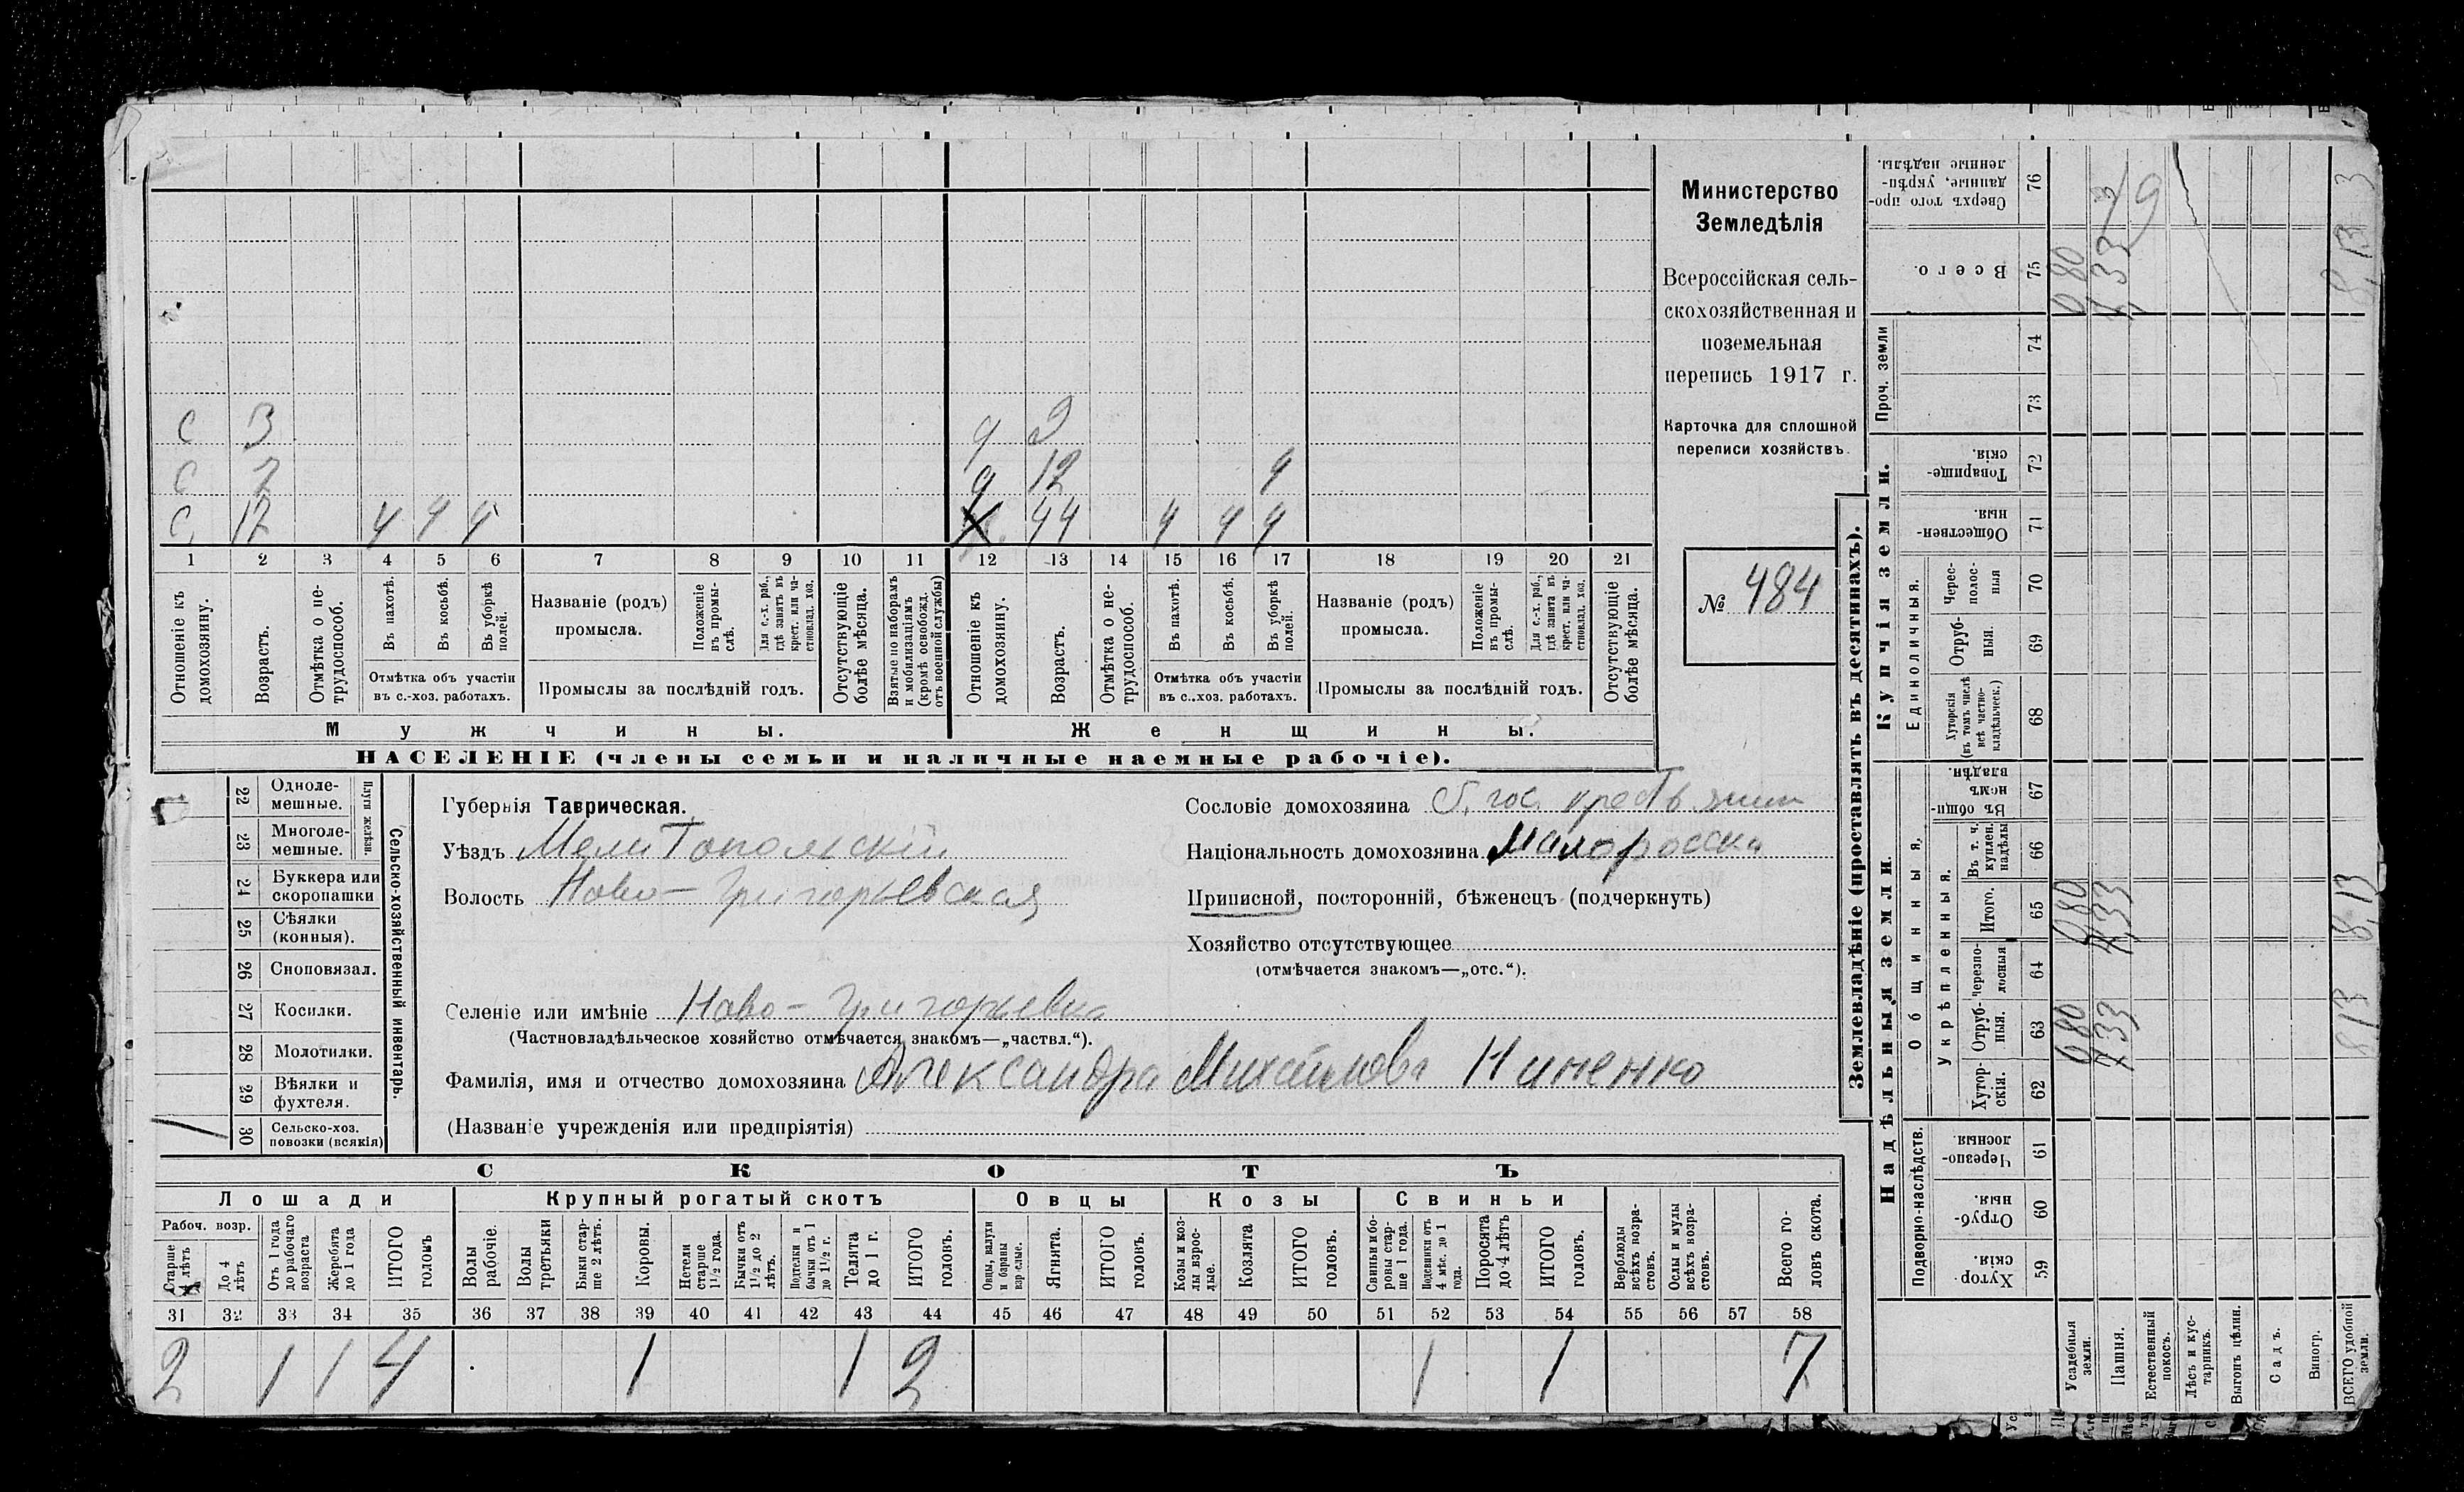 Министерство
Земледѣлія
Всероссійская сель-
скохозяйственная и
поземельная
перепись 1917 г.
Карточка для сплошной
переписи хозяйствъ.
№ 484
С 3 д 9
С 7 д 12 ч
С 17 ч ч ч 44 ч ч ч
1 2 3 4 5 6 7 8 9 10 11 12 13 14 15 16 17 18 19 20 21
Отношеніе къ домохозяину.
Возрастъ.
Отмѣтка о не-трудоспособ.
Въ пахотѣ.
Въ косьбѣ.
Въ уборкѣ полей.
Отмѣтка объ участіи въ с.-хоз. работахъ.
Названіе (родъ) промысла.
Положеніе въ промы-слѣ.
Для с.-х. раб., гдѣ занятъ въ крест. или ча-стновлад. хоз.
Промыслы за послѣдній годъ.
Отсутствующіе болѣе мѣсяца.
Взятые по наборамъ и мобилизаціямъ (кромѣ освобожд. отъ военной службы)
Отношеніе къ домохозяину.
Возрастъ.
Отмѣтка о не-трудоспособ.
Въ пахотѣ.
Въ косьбѣ.
Въ уборкѣ полей.
Отмѣтка объ участіи въ с.-хоз. работахъ.
Названіе (родъ) промысла.
Положеніе въ промы-слѣ.
Для с.-х. раб., гдѣ занята въ крест. или ча-стновлад. хоз.
Промыслы за послѣдній годъ.
Отсутствующіе болѣе мѣсяца.
Мужчины. Женщины.
НАСЕЛЕНІЕ (члены семьи и наличные наемные рабочіе).
Сельско-хозяйственный инвентарь.
Плуги желѣзн.
22 Одноле-мешные.
23 Многоле-мешные.
24 Буккера или скоропашки
25 Сѣялки (конныя).
26 Сноповязал.
27 Косилки.
28 Молотилки.
29 Вѣялки и фухтеля.
30 Сельско-хоз. повозки (всякія) 1
Губернія Таврическая.
Уѣздъ Мелитопольскій
Волость Ново-Григорьевская
Сословіе домохозяина б. гос. крестьянин
Національность домохозяина Малоросска
Приписной, посторонній, бѣженецъ (подчеркнуть)
Хозяйство отсутствующее
(отмѣчается знакомъ—„отс.“).
Селеніе или имѣніе Ново-Григорьевка
(Частновладѣльческое хозяйство отмѣчается знакомъ—„частвл.“).
Фамилія, имя и отчество домохозяина Александра Михайлова Ниненко
(Названіе учрежденія или предпріятія)
СКОТЪ
Лошади Крупный рогатый скотъ Овцы Козы Свиньи
Рабоч. возр.
Старше 4 лѣтъ
До 4 лѣтъ
Отъ 1 года до рабочаго возраста
Жеребята до 1 года
ИТОГО головъ
Волы рабочіе.
Волы третьяки
Быки стар-ше 2 лѣтъ.
Коровы.
Нетели старше 1½ года.
Бычки отъ 1½ до 2 лѣтъ.
Подтелки и бычки отъ 1 до 1½ г.
Телята до 1 г.
ИТОГО головъ.
Овцы, валухи и бараны взрослые.
Ягнята.
ИТОГО головъ.
Козы и коз-лы взрос-лые.
Козлята
ИТОГО головъ.
Свиньи и бо-ровы стар-ше 1 года.
Подсвинки отъ 4 мѣс. до 1 года.
Поросята до 4 лѣтъ
ИТОГО головъ.
Верблюды всѣхъ возра-стовъ.
Ослы и мулы всѣхъ возра-стовъ.
Всего го-ловъ скота.
31 32 33 34 35 36 37 38 39 40 41 42 43 44 45 46 47 48 49 50 51 52 53 54 55 56 57 58
2 1 1 4 1 1 2 1 1 7
Землевладѣніе (проставлять въ десятинахъ).
Надѣльныя земли. Купчія земли. Проч. земли
Подворно-наслѣдств.
Общинныя.
Укрѣпленныя.
Единоличныя.
59 Хутор-скія.
60 Отруб-ныя.
61 Черезпо-лосныя.
62 Хутор-скія.
63 Отруб-ныя. 0,80 7,33 8,13
64 Черезпо-лосныя
65 Итого. 0,80 7,33 8,13
66 Въ т. ч. куплен. надѣлы
67 Въ общи-номъ владѣн.
68 Хуторскія (въ томъ числѣ всѣ частно-владѣльческ.)
69 Отруб-ныя.
70 Черес-полос-ныя
71 Обществен-ныя.
72 Товарище-скія.
73
74
75 Всего. 0,80 7,33 8,13
76 Сверхъ того про-данные, укрѣп-ленные надѣлы. 3
Усадебныя земли.
Пашня.
Естественный покосъ.
Лѣсъ и кус-тарникъ.
Выгонъ цѣлин.
Садъ.
Виногр.
ВСЕГО удобной земли.